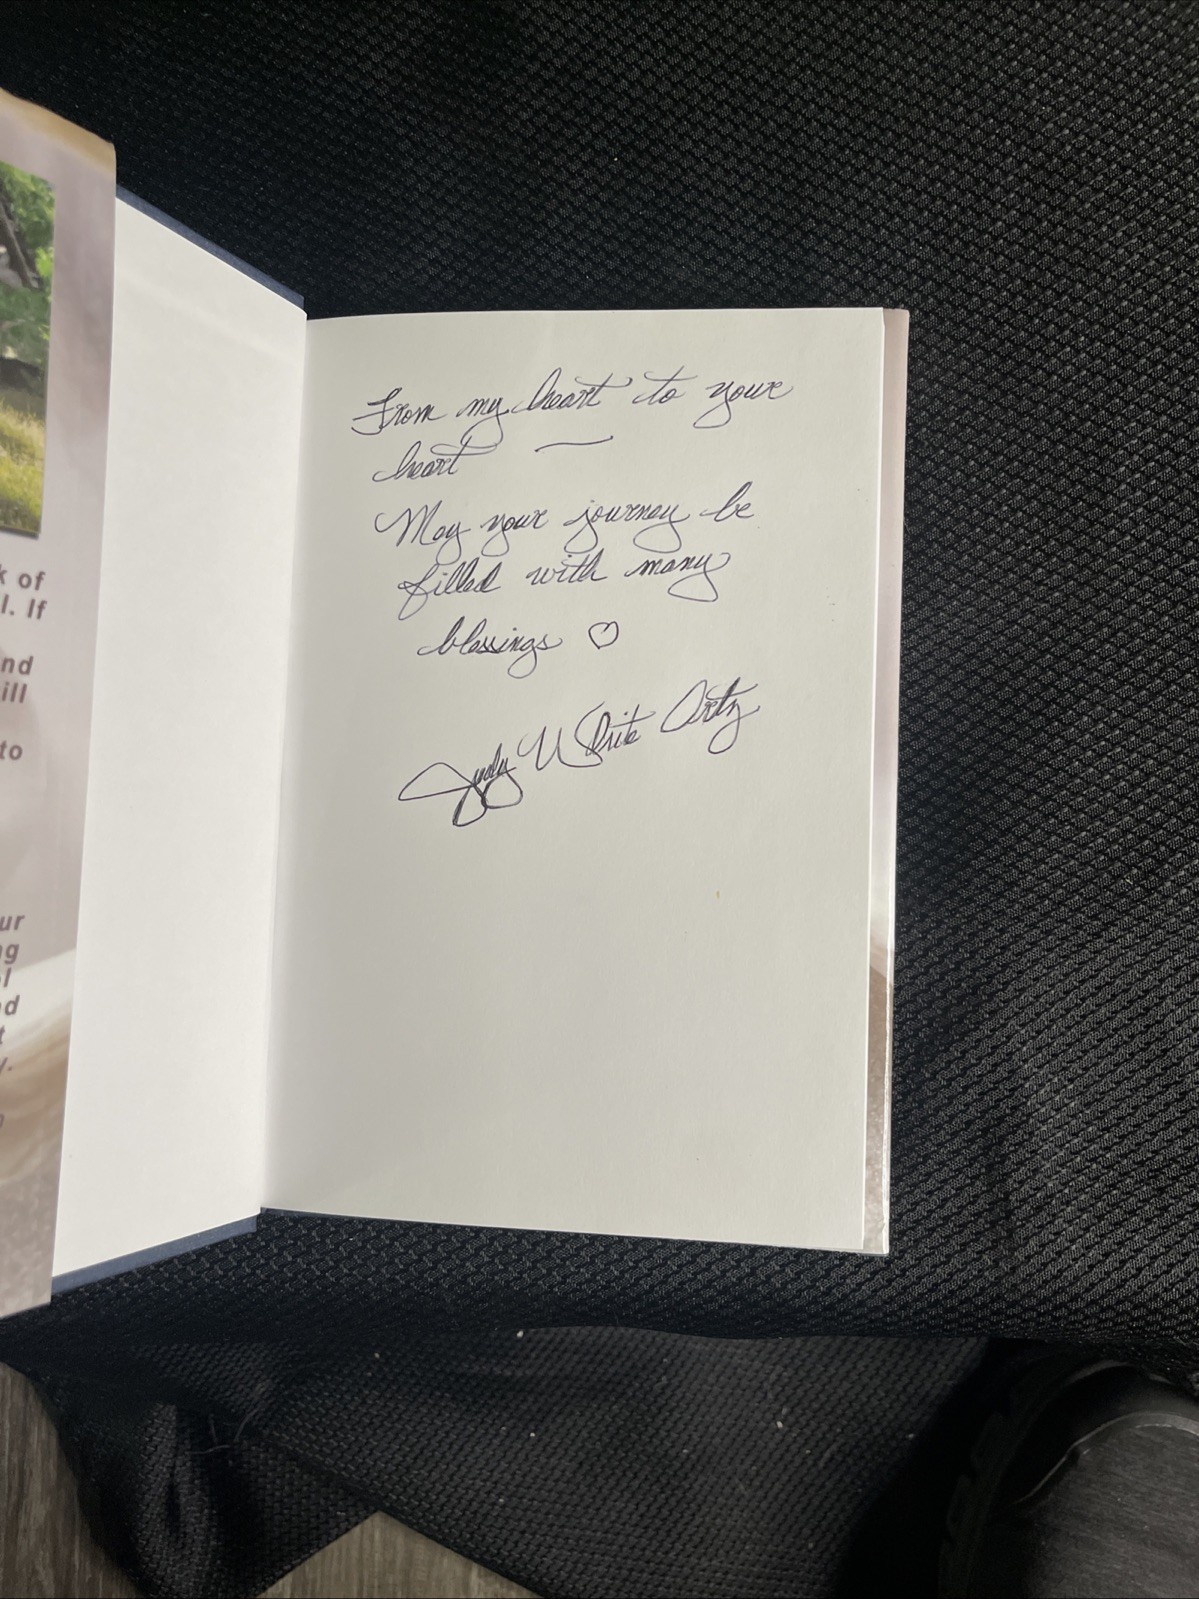 k of
l. If
nd
ill
to
ur
ng
d
t
y.
From my heart to your
heart —
May your journey be
filled with many
blessings ♡
Judy White Artz